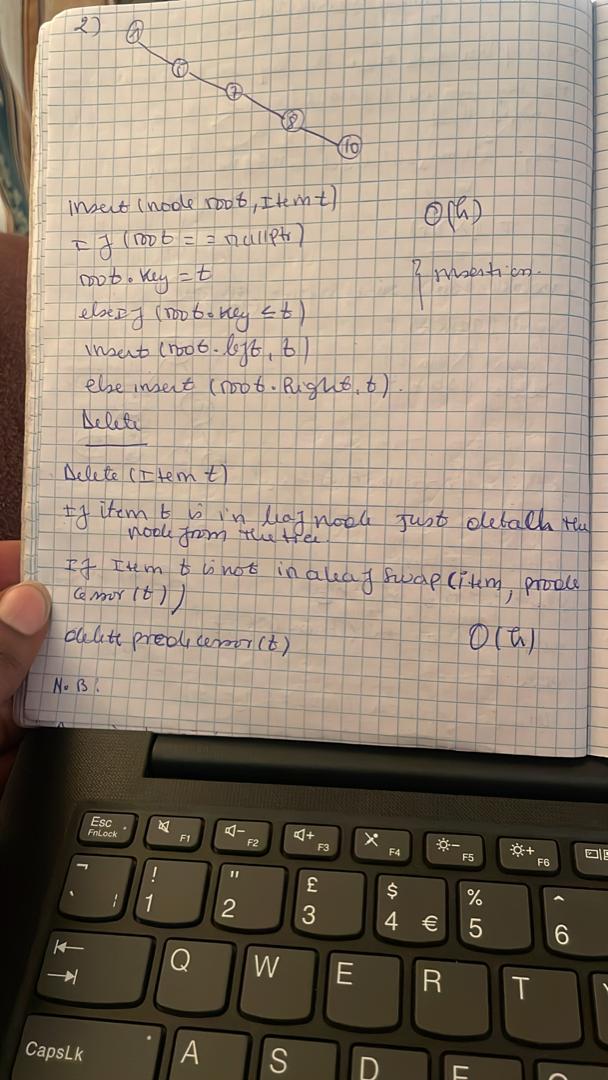 2)
6
7
8
10
Insert (node root, Item t)
O(h)
If (root == nullptr)
root.key = t
} Insertion.
elseIf (root.key ≤ t)
insert (root.left, t)
else insert (root.Right, t).
Delete
Delete (Item t)
If item t is in leaf node just detach the
node from the tree.
If Item t is not in a leaf swap (item, prede
cessor (t))
delete predecessor (t)
O(h)
N.B:
Esc
FnLock
F1
F2
F3
F4
F5
F6
¬
` ¦
!
1
"
2
£
3
$
4 €
%
5
^
6
Q
W
E
R
T
CapsLk
A
S
D
F